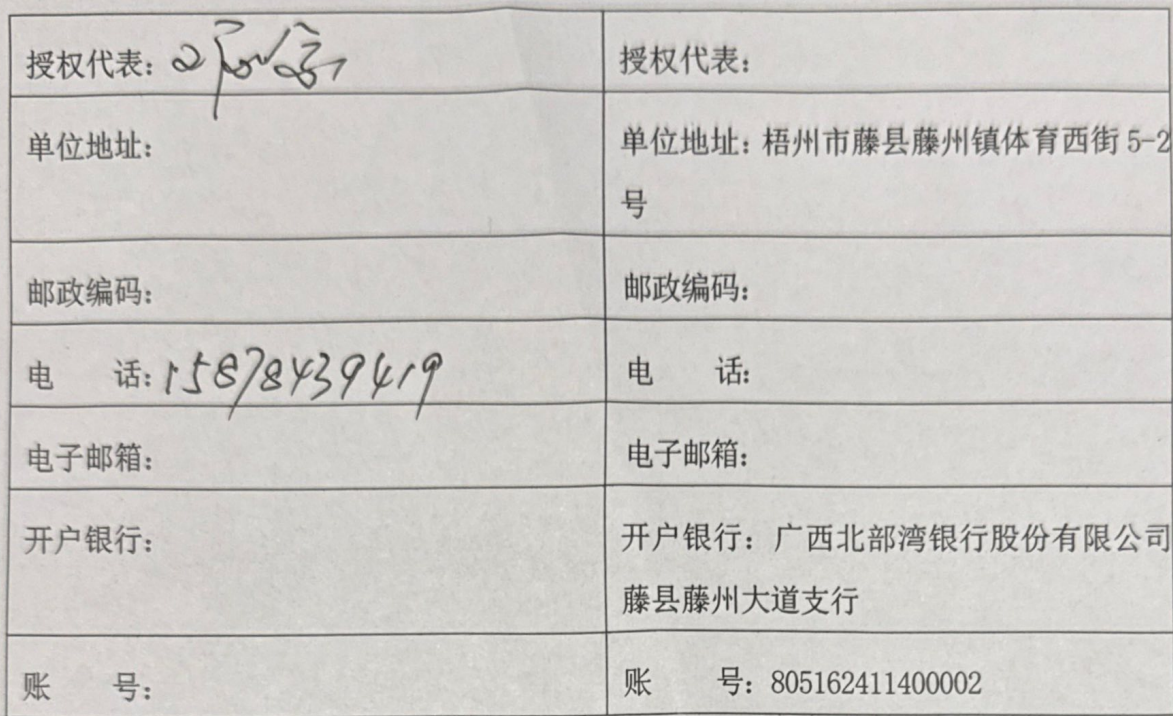 授权代表：
授权代表：
单位地址：
单位地址：梧州市藤县藤州镇体育西街 5-2
号
邮政编码：
邮政编码：
电　　话：15878439419
电　　话：
电子邮箱：
电子邮箱：
开户银行：
开户银行：广西北部湾银行股份有限公司
藤县藤州大道支行
账　　号：
账　　号：805162411400002